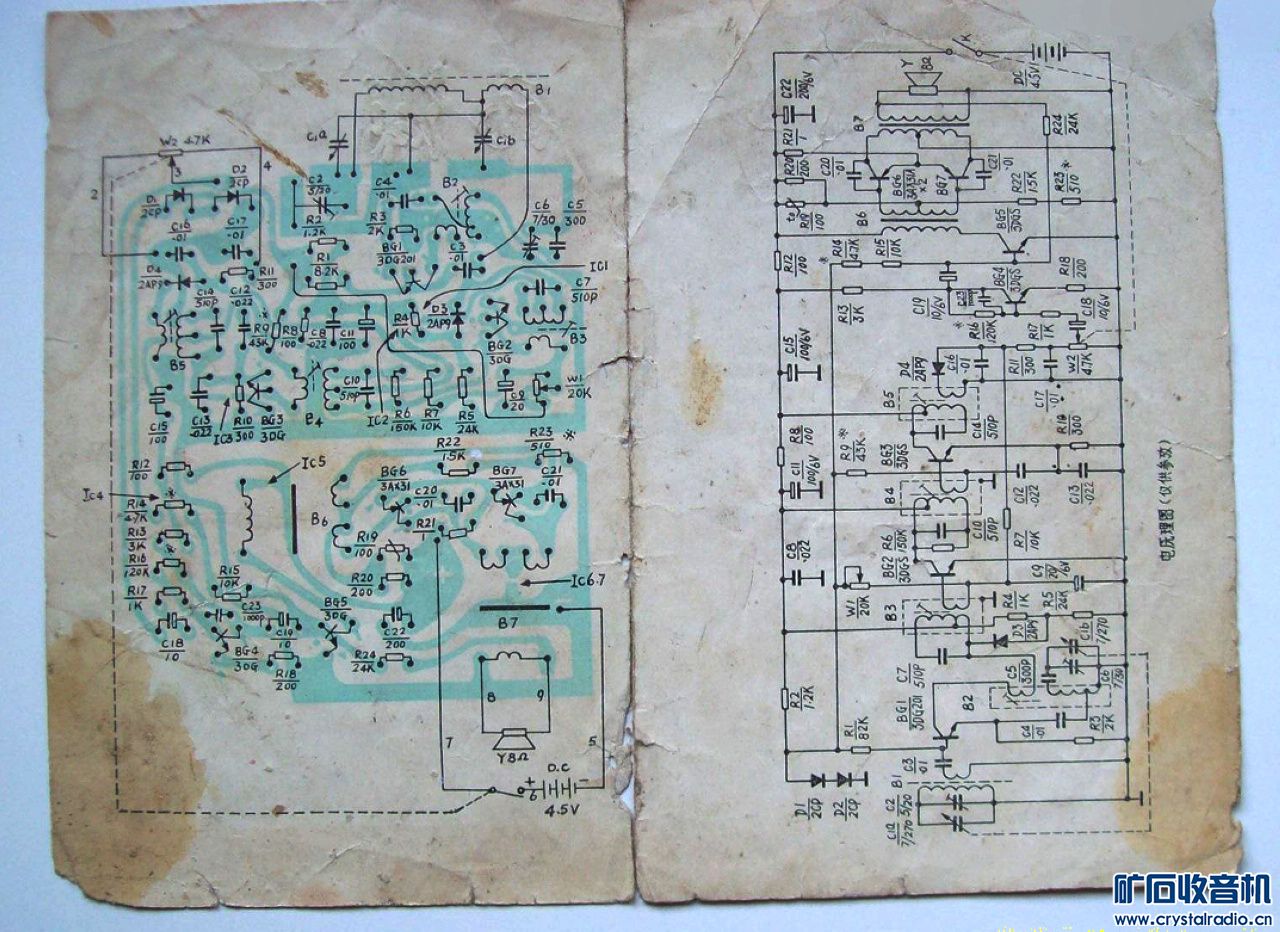 B1
C1a
C1b
W2 4.7K
2
3
4
D2
2CP
D1
2CP
C16
.01
C17
.01
C2
5/20
R2
1.2K
C4
.01
R3
2K
BG1
3DG201
B2
C3
.01
C6
7/30
C5
300
D4
2AP9
C14
510P
C12
.022
R11
300
R1
8.2K
IC1
C7
510P
R9
43K
R8
100
C8
.022
C11
100
R4
1K
D3
2AP9
BG2
3DG
B3
B5
C15
100
C13
.022
IC3
R10
300
BG3
3DG
B4
C10
510P
IC2
R6
150K
R7
10K
R5
24K
C9
20
W1
20K
R12
100
Ic4
R14
4.7K
R13
3K
*
R16
120K
R17
1K
C18
10
Ic5
B6
R22
1.5K
BG6
3AX31
C20
.01
R21
1
BG7
3AX31
R23
510
*
C21
.01
R19
100
R20
200
IC6.7
R15
10K
C23
1000P
BG4
3DG
C19
10
R18
200
BG5
3DG
C22
200
R24
24K
B7
8
9
Y8Ω
7
5
6
+
-
D.C
4.5V
K
C22
200/6V
Y
8Ω
DC
4.5V
R21
1
R20
200
C20
.01
B7
R24
24K
BG6
3AX31
×2
BG7
C21
.01
R19
100
B6
R22
1.5K
R23*
510
R12
100
R14
4.7K
R15
10K
BG5
3DG5
R13
3K
C19
10/6V
C23
1000P
BG4
3DG5
R18
200
C15
100/6V
D4
2AP9
C16
.01
R16
120K
R17
1K
C18
10/6V
R11
300
W2
4.7K
C17
.01
R8
100
R9*
43K
BG3
3DG5
B5
C14
510P
R10
300
C11
100/6V
B4
C12
.022
C13
.022
C8
.022
BG2
3DG5
R6
150K
C10
510P
R7
10K
W1
20K
B3
R4
1K
R5
24K
C9
20/6V
C7
510P
D3
2AP9
C1b
7/270
R2
1.2K
BG1
3DG201
C5
300P
C6
7/30
R1
82K
B2
C4
.01
R3
2K
D1
2CP
D2
2CP
C3
.01
B1
C2
5/20
C1a
7/270
电原理图(仅供参考)
矿石收音机
www.crystalradio.cn